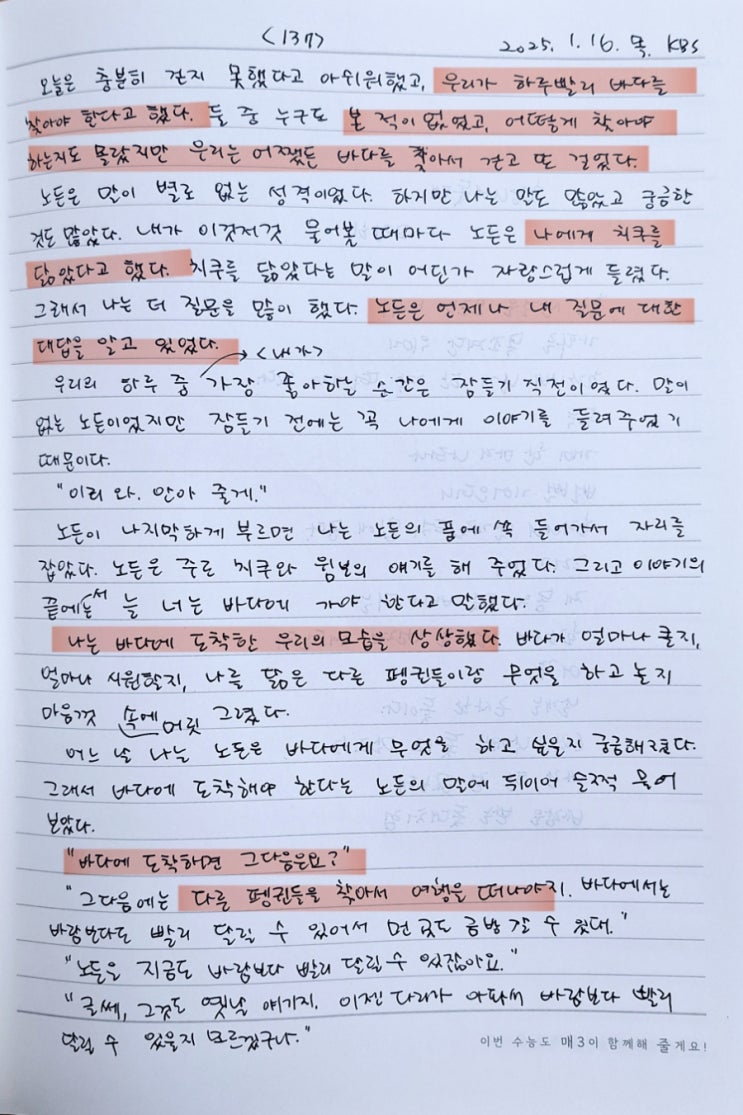 <137>
2025. 1. 16. 목. KBS
오늘은 충분히 걷지 못했다고 아쉬워했고, 우리가 하루빨리 바다를
찾아야 한다고 했다. 둘 중 누구도 본 적이 없었고, 어떻게 찾아야
하는지도 몰랐지만 우리는 어쨌든 바다를 찾아서 걷고 또 걸었다.
노든은 말이 별로 없는 성격이었다. 하지만 나는 말도 많았고 궁금한
것도 많았다. 내가 이것저것 물어볼 때마다 노든은 나에게 치쿠를
닮았다고 했다. 치쿠를 닮았다는 말이 어딘가 자랑스럽게 들렸다.
그래서 나는 더 질문을 많이 했다. 노든은 언제나 내 질문에 대한
대답을 알고 있었다.
<내가>
우리의 하루 중 가장 좋아하는 순간은 잠들기 직전이었다. 말이
없는 노든이었지만 잠들기 전에는 꼭 나에게 이야기를 들려주었기
때문이다.
"이리 와. 안아 줄게."
노든이 나지막하게 부르면 나는 노든의 품에 쏙 들어가서 자리를
잡았다. 노든은 주로 치쿠와 윔보의 얘기를 해 주었다. 그리고 이야기의
끝에는서 늘 너는 바다에 가야 한다고 말했다.
나는 바다에 도착한 우리의 모습을 상상했다. 바다가 얼마나 클지,
얼마나 시원할지, 나를 닮은 다른 펭귄들이랑 무엇을 하고 놀지
마음껏 속에 머릿 그렸다.
어느 날 나는 노든은 바다에게 무엇을 하고 싶은지 궁금해졌다.
그래서 바다에 도착해야 한다는 노든의 말에 뒤이어 슬쩍 물어
보았다.
"바다에 도착하면 그다음은요?"
"그다음에는 다른 펭귄들을 찾아서 여행을 떠나야지. 바다에서는
바람보다도 빨리 달릴 수 있어서 먼 곳도 금방 갈 수 있대."
"노든은 지금도 바람보다 빨리 달릴 수 있잖아요."
"글쎄, 그것도 옛날 얘기지. 이젠 다리가 아파서 바람보다 빨리
달릴 수 있을지 모르겠구나."
이번 수능도 매3이 함께해 줄게요!